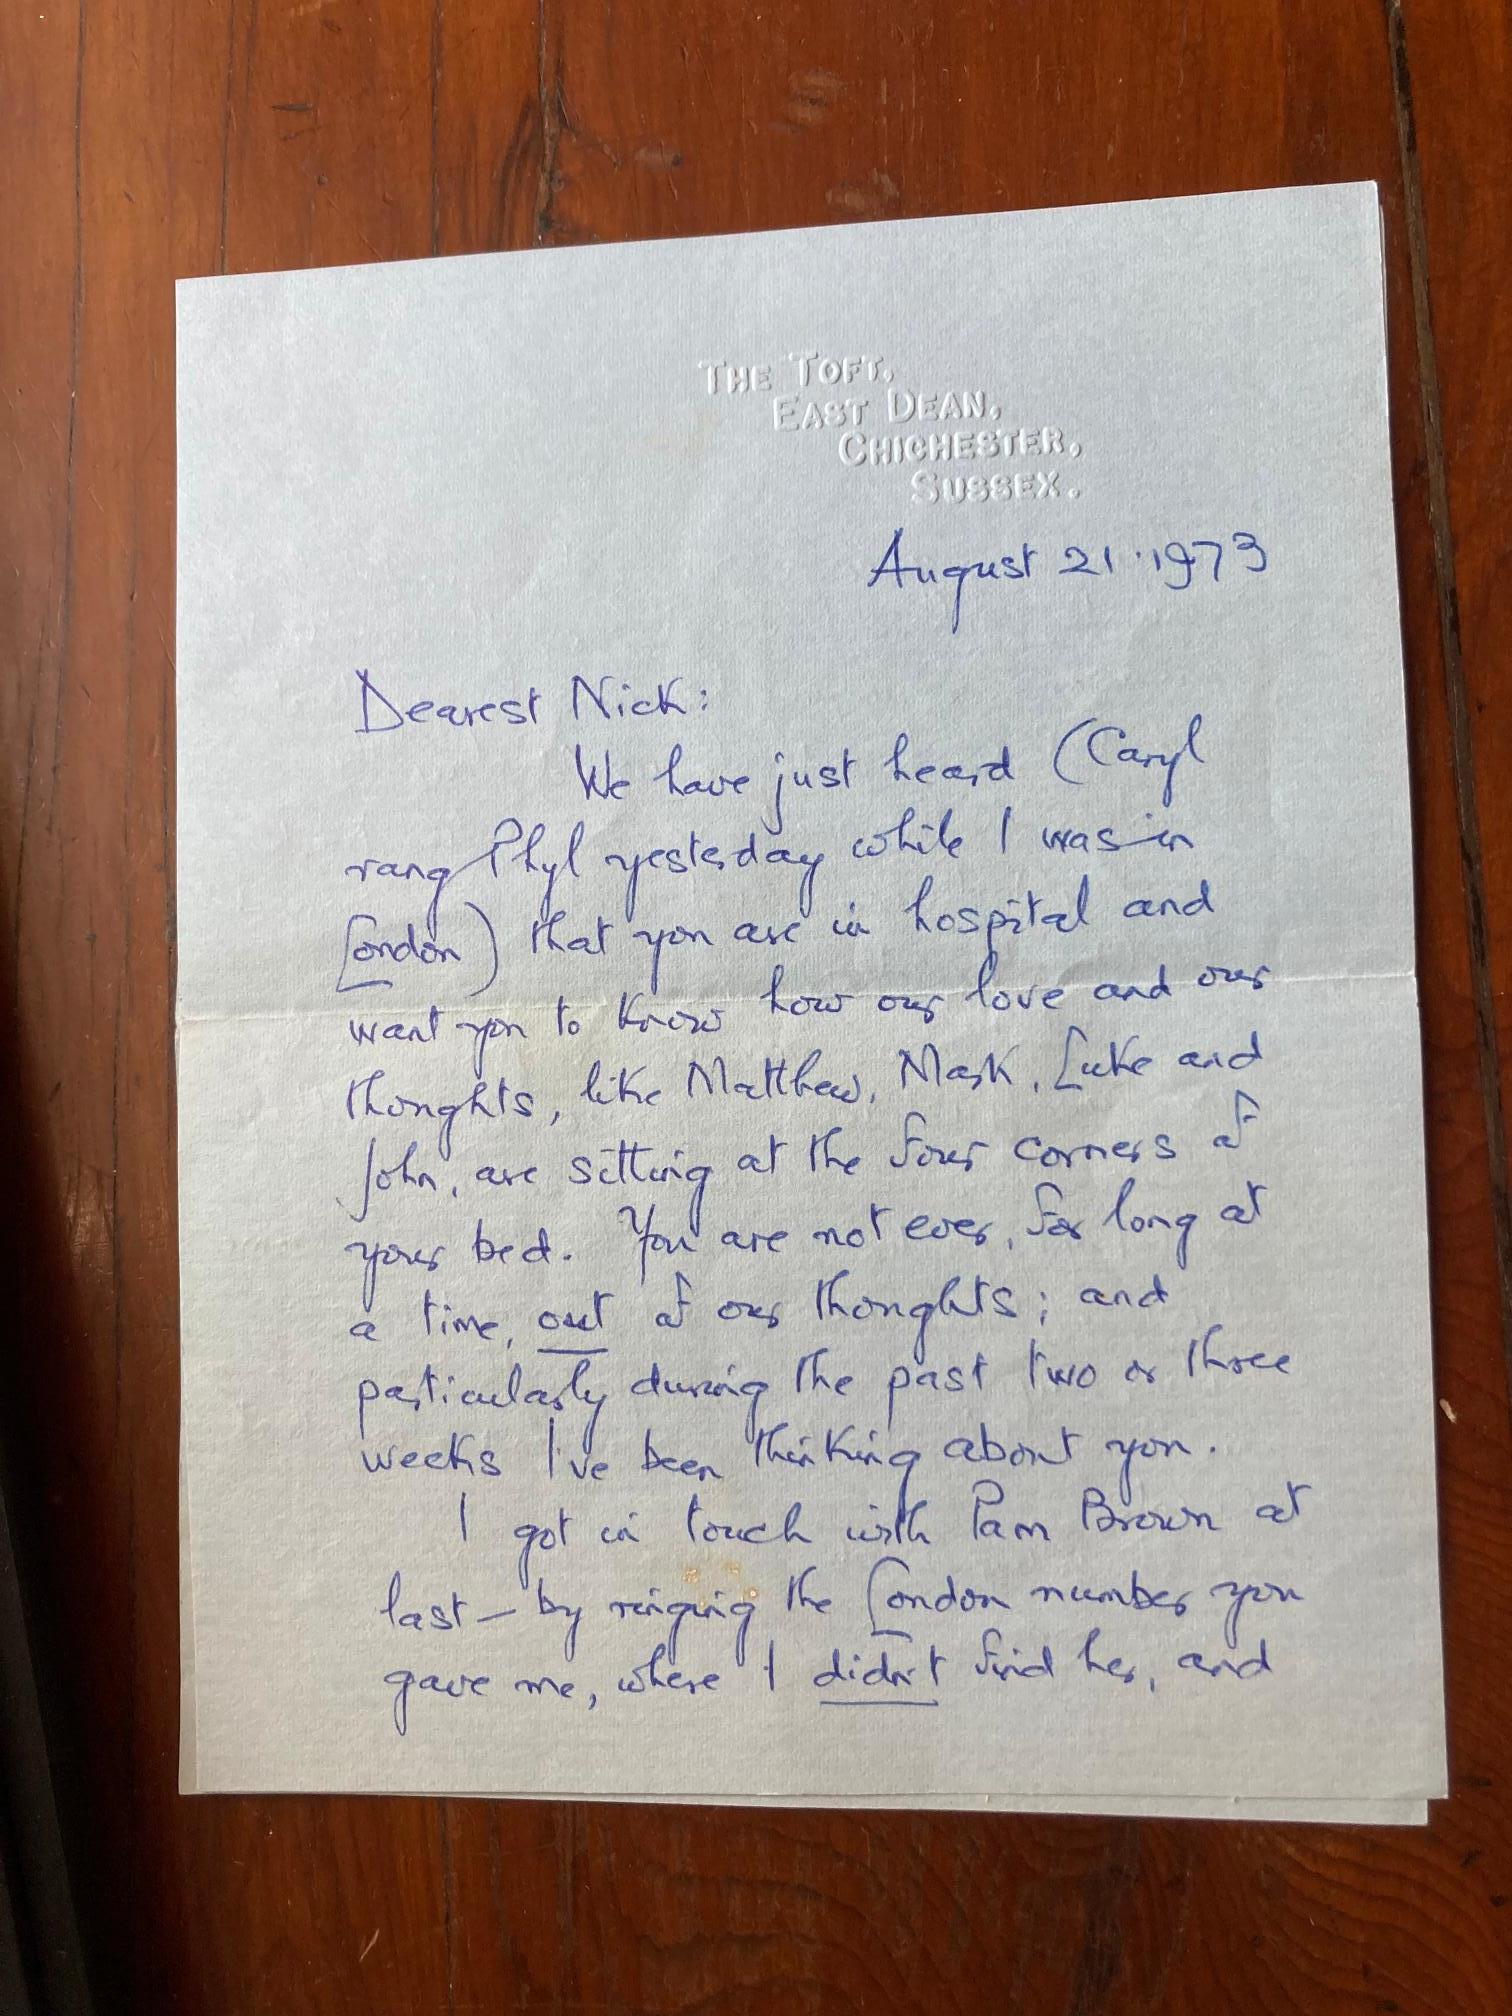 THE TOFT,
EAST DEAN,
CHICHESTER,
SUSSEX.
August 21.1973
Dearest Nick:
We have just heard (Caryl
rang Phyl yesterday while I was in
London) that you are in hospital and
want you to know how our love and our
thoughts, like Matthew, Mark, Luke and
John, are sitting at the four corners of
your bed. You are not ever, for long at
a time, out of our thoughts; and
particularly during the past two or three
weeks I've been thinking about you.
I got in touch with Pam Brown at
last – by ringing the London number you
gave me, where I didn't find her, and